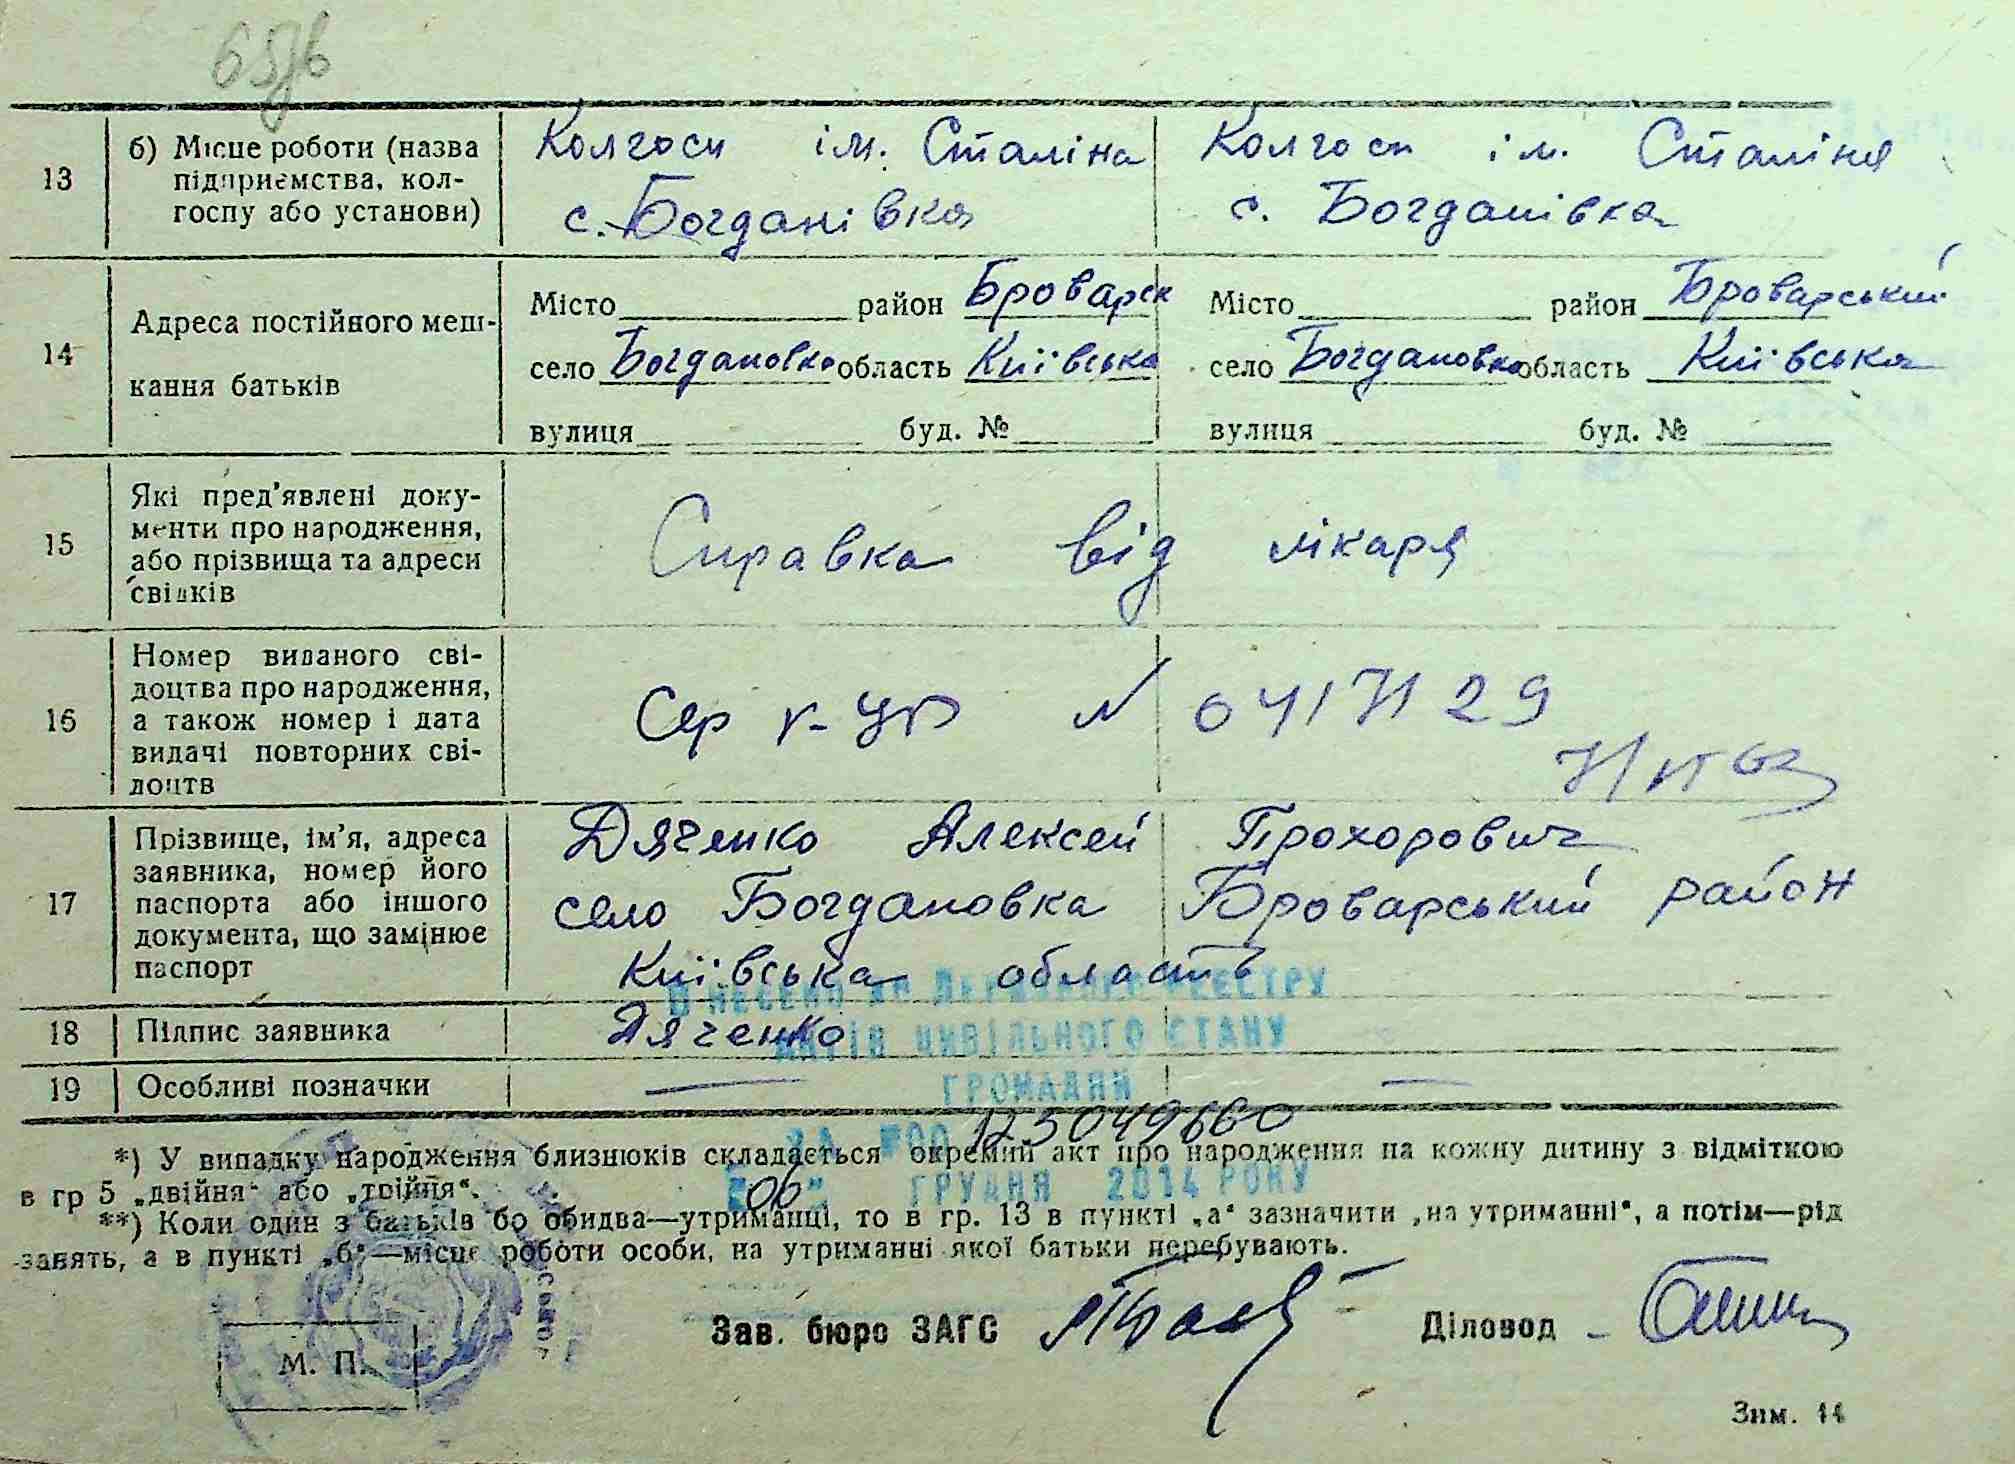 13 б) Місце роботи (назва підприємства, колгоспу або установи)
Колгосп ім. Сталіна
с. Богданівка
Колгосп ім. Сталіна
с. Богданівка
14 Адреса постійного мешкання батьків
Місто район Броварськ
село Богдановка область Київська
вулиця буд. №
Місто район Броварський
село Богдановка область Київська
вулиця буд. №
15 Які пред'явлені документи про народження, або прізвища та адреси свідків
Справка від лікаря
16 Номер виданого свідоцтва про народження, а також номер і дата видачі повторних свідоцтв
Сер N
17 Прізвище, ім'я, адреса заявника, номер його паспорта або іншого документа, що замінює паспорт
Дяченко Алексей Прохорович
село Богдановка Броварський район
Київська область
18 Підпис заявника
Дяченко
19 Особливі позначки
ВНЕСЕНО ДО ДЕРЖАВНОГО РЕЄСТРУ
АКТІВ ЦИВІЛЬНОГО СТАНУ
ГРОМАДЯН
ЗА №00125049660
"06" ГРУДНЯ 2014 РОКУ
*) У випадку народження близнюків складається окремий акт про народження на кожну дитину з відміткою
в гр 5 „двійня" або „трійня".
**) Коли один з батьків бо обидва—утриманці, то в гр. 13 в пункті „а" зазначити „на утриманні", а потім—рід
занять, а в пункті „б"—місце роботи особи, на утриманні якої батьки перебувають.
М. П.
Зав. бюро ЗАГС
Діловод
Зим. 14